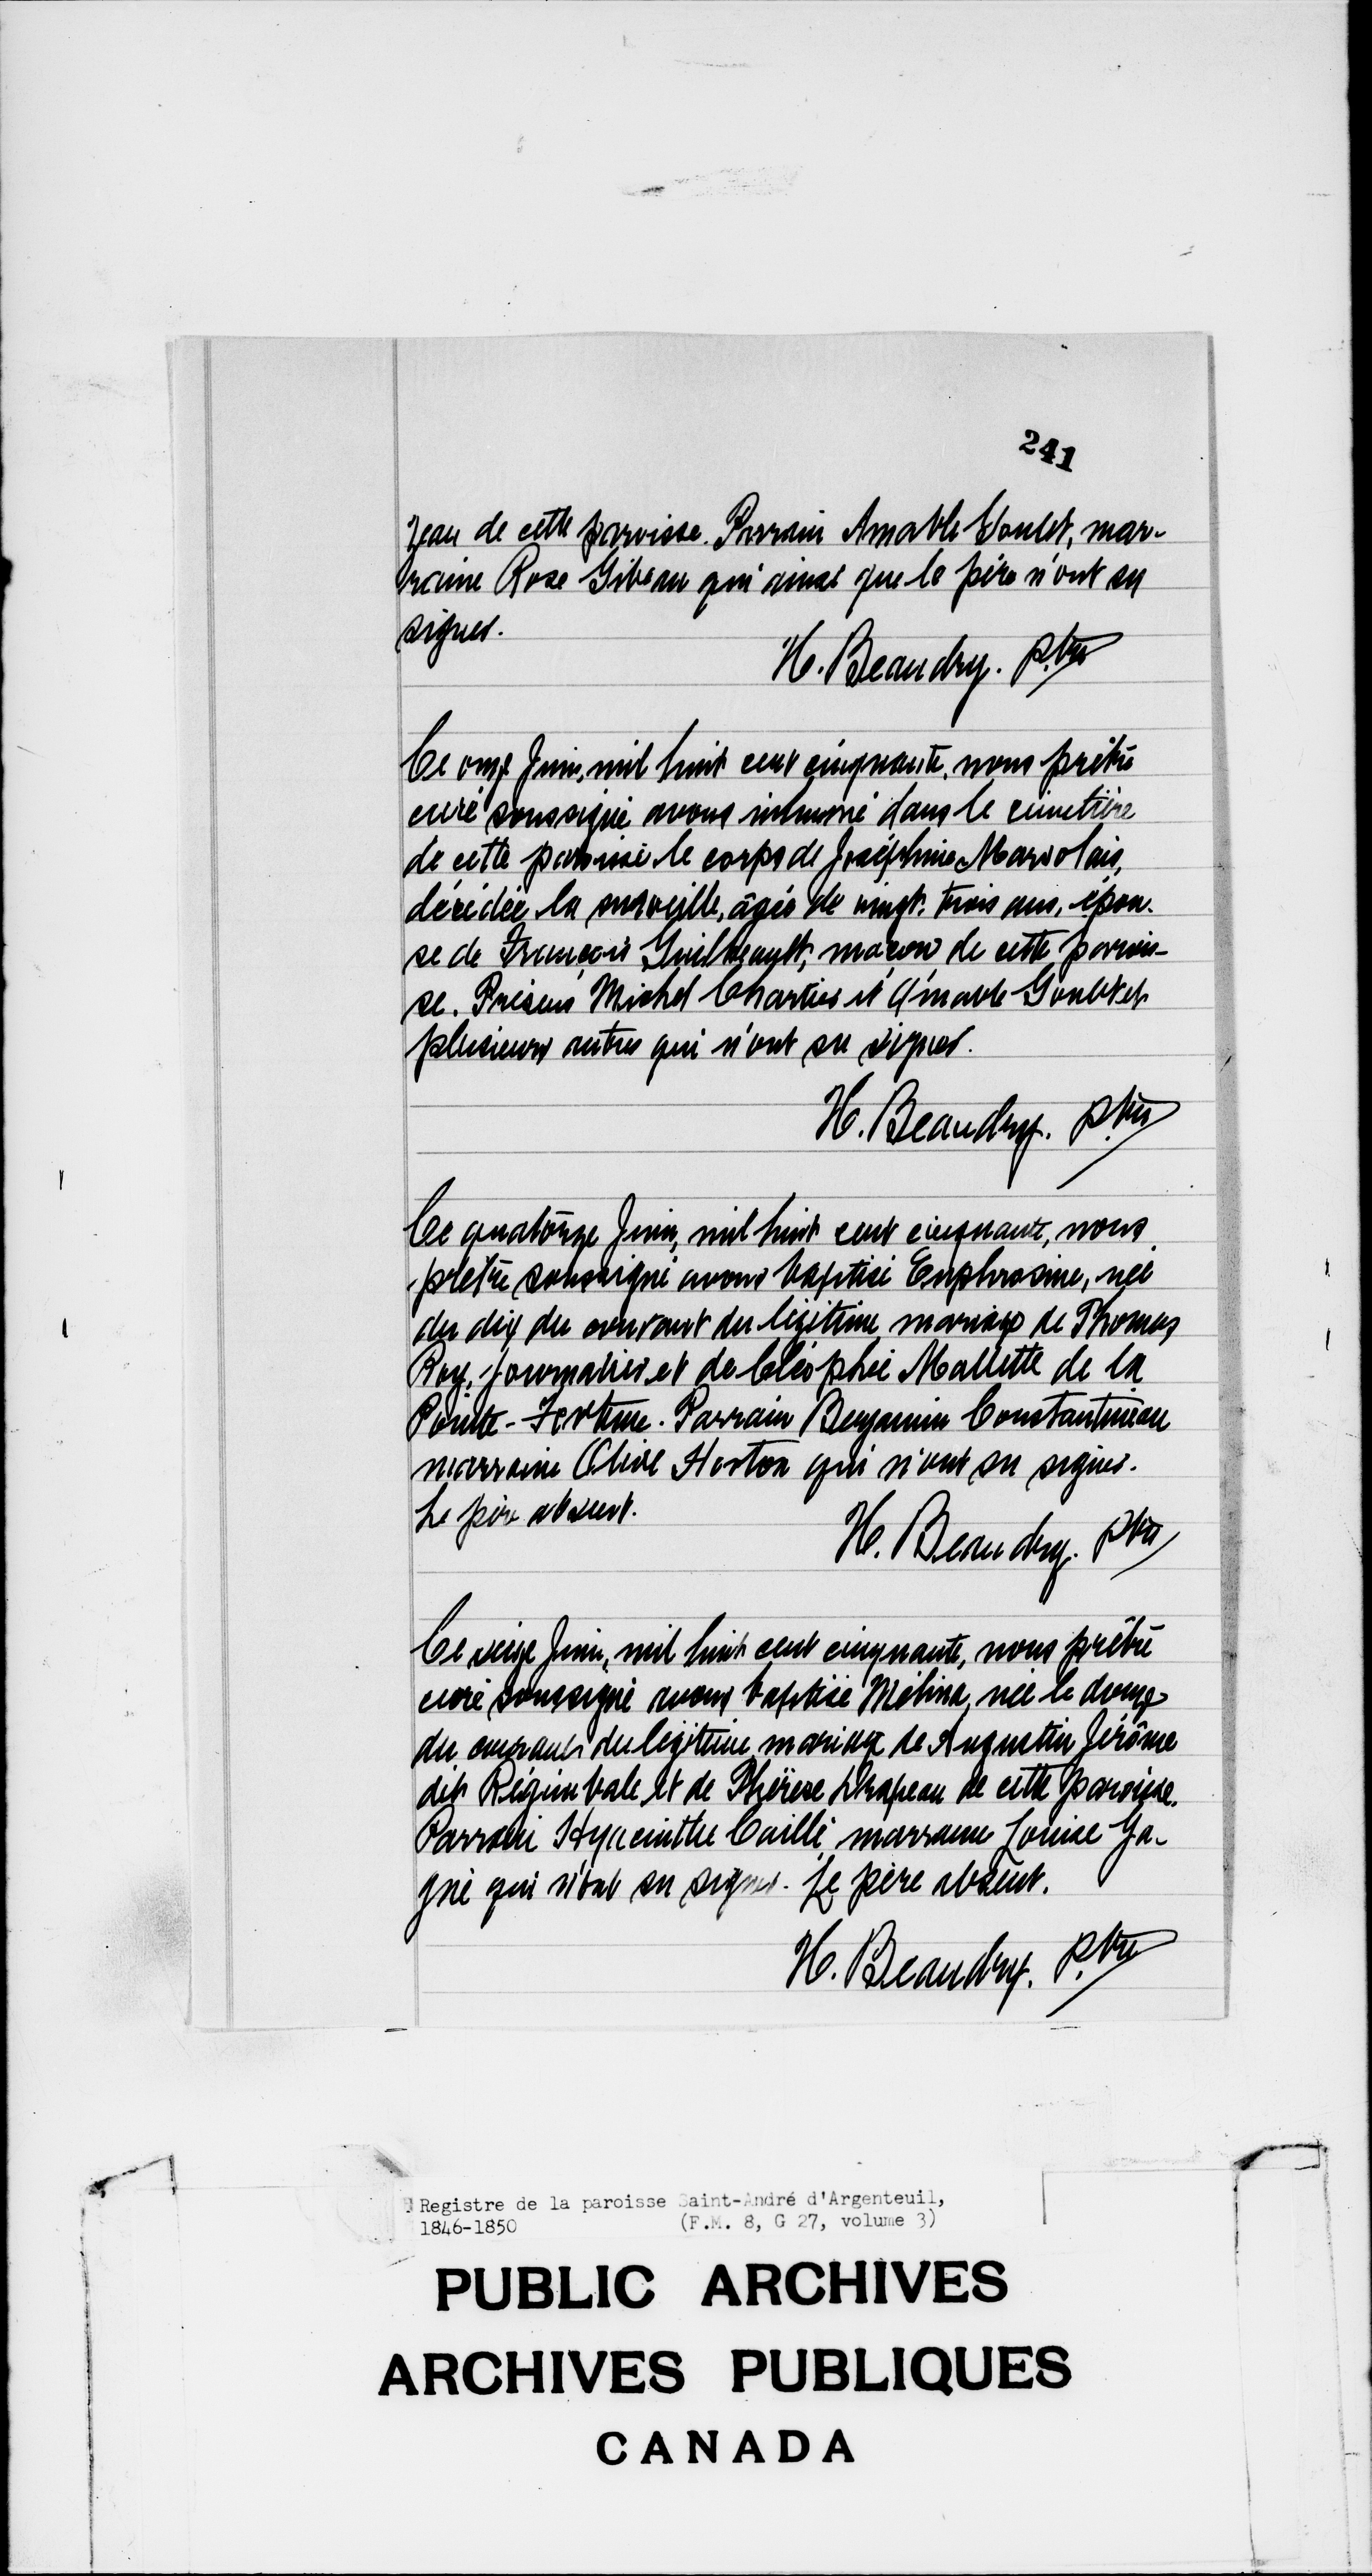 241
reau de cette paroisse. Parrain Amable Goulet, mar-
raine Rose Gibeau qui ainsi que le père n'ont su
signer.
H. Beaudry. ptre
Ce onze Juin, mil huit cent cinquante, nous prêtre
curé soussigné avons inhumé dans le cimetière
de cette paroisse le corps de Joséphine Marsolais,
décédée la surveille, âgée de vingt-trois ans, épou-
se de François Guilbeault, maçon de cette parois-
se. Présens Michel Chartier et Amable Goulet et
plusieurs autres qui n'ont su signer.
H. Beaudry. ptre
Ce quatorze Juin, mil huit cent cinquante, nous
prêtre soussigné avons baptisé Euphrosine, née
du dix du courant du légitime mariage de Thomas
Roy, journalier et de Cléophée Mallette de la
Pointe-Fortune. Parrain Benjamin Constantineau
marraine Olive Horton qui n'ont su signer.
Le père absent.
H. Beaudry. ptre
Ce seize Juin, mil huit cent cinquante, nous prêtre
curé soussigné avons baptisé Mélina, née le douze
du courant du légitime mariage de Augustin Jérôme
dit Régimbale et de Thérèse Drapeau de cette paroisse.
Parrain Hyacinthe Caillé, marraine Louise Ga-
gné qui n'ont su signer. Le père absent.
H. Beaudry. ptre
Registre de la paroisse Saint-André d'Argenteuil,
1846-1850 (F.M. 8, G 27, volume 3)
PUBLIC ARCHIVES
ARCHIVES PUBLIQUES
CANADA